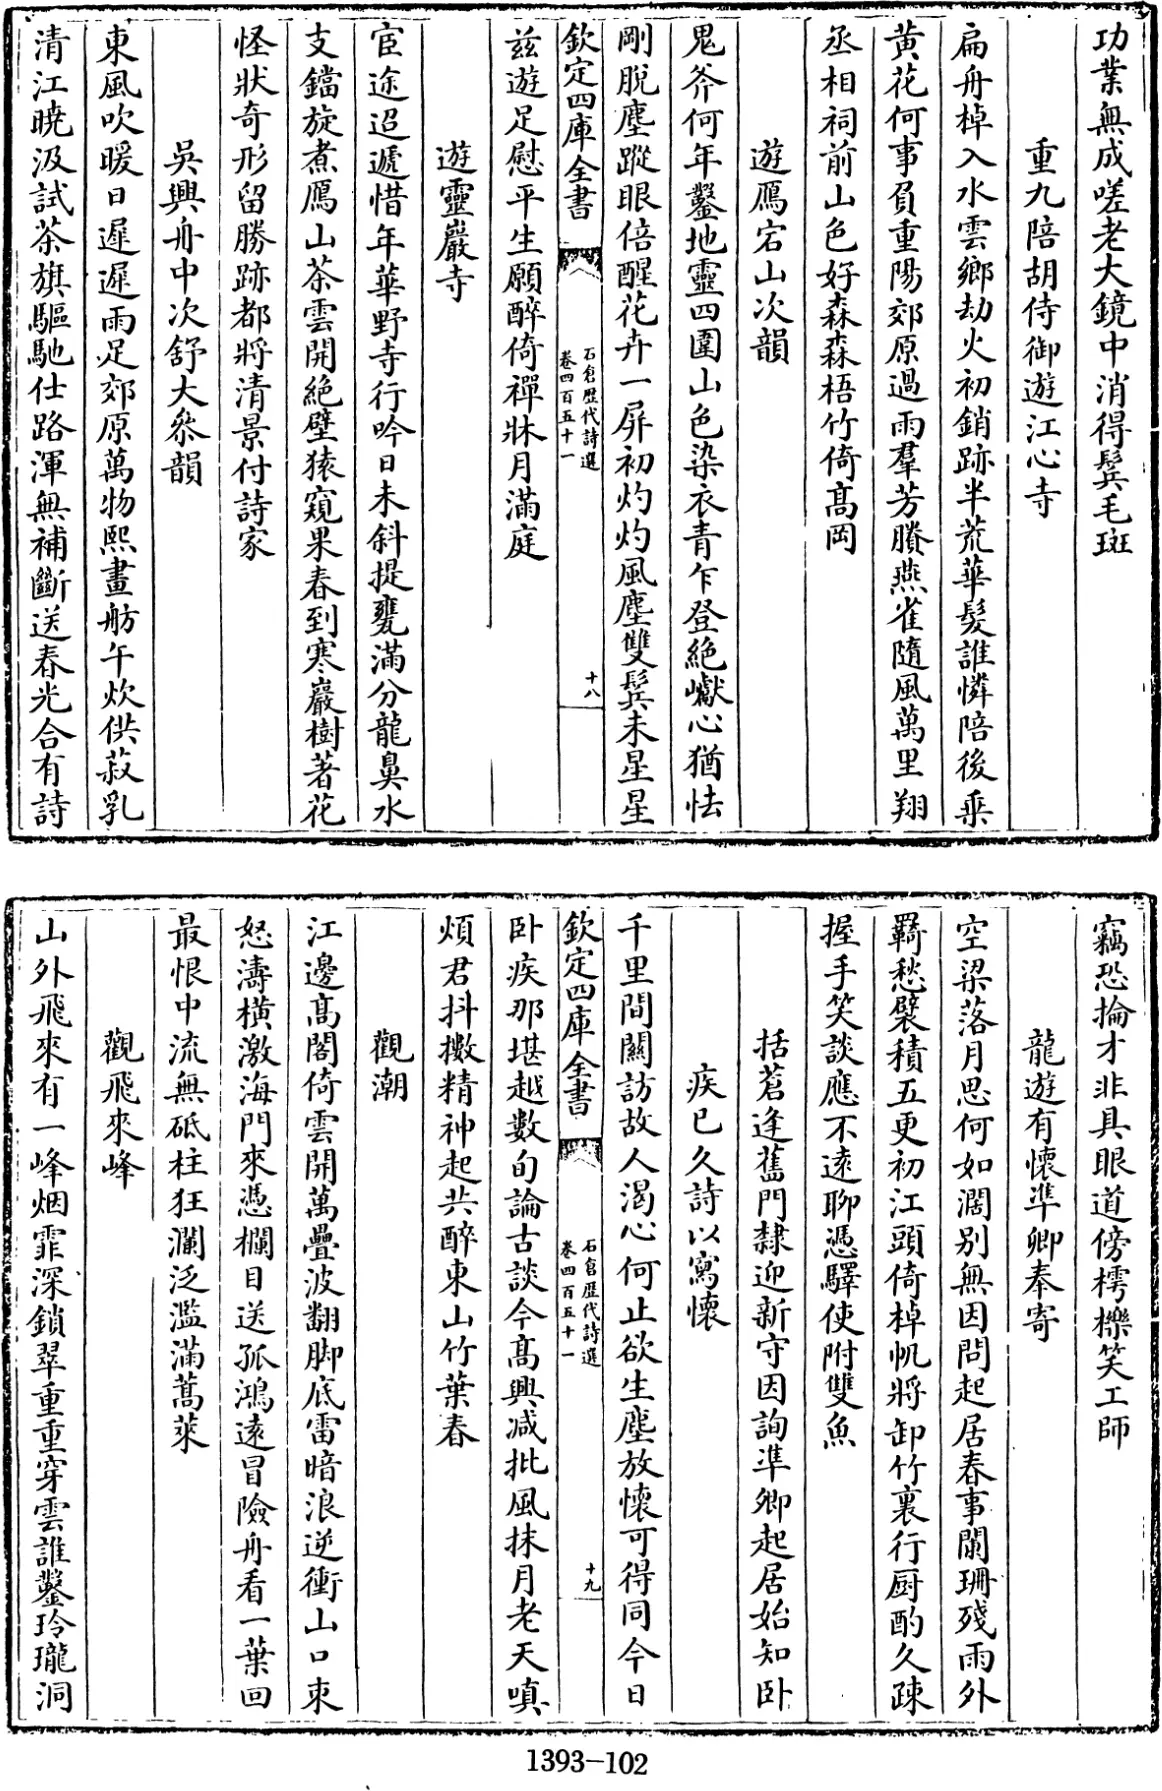 功業無成嗟老大鏡中消得鬂毛斑
重九陪胡侍御遊江心寺
扁舟棹入水雲鄉劫火初銷跡半荒華髮誰憐陪後乘
黄花何事負重陽郊原過雨羣芳賸燕雀隨風萬里翔
丞相祠前山色好森森梧竹倚髙岡
遊鴈宕山次韻
鬼斧何年鑿地靈四圍山色染衣青乍登絶巘心猶怯
剛脱塵蹤眼倍醒花卉一屏初灼灼風塵雙鬂未星星
欽定四庫全書
石倉歴代詩選
卷四百五十一
十八
兹遊足慰平生願醉倚禪牀月滿庭
遊靈巖寺
宦途迢遞惜年華野寺行吟日未斜提甕滿分龍鼻水
支鐺旋煮鴈山茶雲開絶壁猿窺果春到寒巖樹著花
怪狀奇形留勝跡都將清景付詩家
吳興舟中次舒大叅韻
東風吹暖日遲遲雨足郊原萬物熙畫舫午炊供菽乳
清江曉汲試茶旗驅馳仕路渾無補斷送春光合有詩
竊恐掄才非具眼道傍樗櫟笑工師
龍遊有懷凖卿奉寄
空梁落月思何如濶别無因問起居春事闌珊殘雨外
羇愁襞積五更初江頭倚棹帆將卸竹裏行厨酌久疎
握手笑談應不遠聊憑驛使附雙魚
括蒼逢舊門隸迎新守因詢凖卿起居始知卧
疾已久詩以寫懷
千里間關訪故人渴心何止欲生塵放懷可得同今日
欽定四庫全書
石倉歴代詩選
卷四百五十一
十九
卧疾那堪越數旬論古談今髙興减批風抹月老天嗔
煩君抖擻精神起共醉東山竹葉春
觀潮
江邊髙閣倚雲開萬疊波翻脚底雷暗浪逆衝山口束
怒濤橫激海門來憑欄目送孤鴻遠冒險舟看一葉回
最恨中流無砥柱狂瀾泛濫滿蒿萊
觀飛來峰
山外飛來有一峰烟霏深鎖翠重重穿雲誰鑿玲瓏洞
1393-102